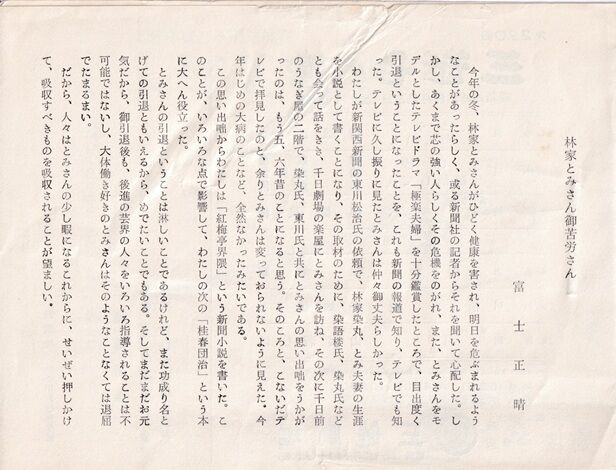 林家とみさん御苦労さん
富士正晴
今年の冬、林家とみさんがひどく健康を害され、明日を危ぶまれるよう
なことがあったらしく、或る新聞社の記者からそれを聞いて心配した。し
かし、あくまで芯の強い人らしくその危機をのがれ、また、とみさんをモ
デルとしたテレビドラマ「極楽夫婦」を十分鑑賞したところで、目出度く
引退ということになったことを、これも新聞の報道で知り、テレビでも知
った。テレビに久し振りに見たとみさんは仲々御丈夫らしかった。
わたしが新関西新聞の東川松治氏の依頼で、林家染丸、とみ夫妻の生涯
を小説として書くことになり、その取材のために、染語楼氏、染丸氏など
とも会って話をきき、千日劇場の楽屋にとみさんを訪ね、その次に千日前
のうなぎ屋の二階で、染丸氏、東川氏と共にとみさんの思い出咄をうかが
ったのは、もう五、六年昔のことになると思う。そのころと、こないだテ
レビで拝見したのと、余りとみさんは変っておられないように見えた。今
年はじめの大病のことなど、全然なかったみたいである。
この思い出咄からわたしは「紅梅亭界隈」という新聞小説を書いた。こ
のことが、いろいろな点で影響して、わたしの次の「桂春団治」という本
に大へん役立った。
とみさんの引退ということは淋しいことであるけれど、また功成り名と
げての引退ともいえるから、めでたいことでもある。そしてまだまだお元
気だから、御引退後も、後進の芸界の人々をいろいろ指導されることは不
可能ではないし、大体働き好きのとみさんはそのようなことなくては退屈
でたまるまい。
だから、人々はとみさんの少し暇になるこれからに、せいぜい押しかけ
て、吸収すべきものを吸収されることが望ましい。